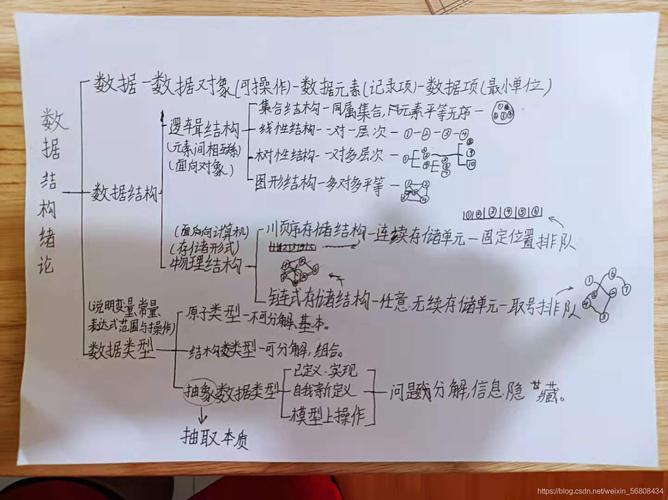 数据结构绪论
数据-数据对象(可操作)-数据元素(记录项)-数据项(最小单位)
数据结构
逻辑结构
(面向对象)
集合结构-同属集合,内元素平等无序-
线性结构-一对一层次-①-②-③-④
树性结构-一对多层次-
图形结构-多对多平等-
(面向计算机)
(存储形式)
物理结构
顺序存储结构-连续存储单元-固定位置排队
链式存储结构-任意.无续存储单元-取号排队
(说明变量,常量,
表达式范围与操作)
数据类型
原子类型-不可分解,基本。
结构类型-可分解,组合。
抽象数据类型
已定义.实现
自我新定义
模型上操作
问题分解,信息隐藏。
抽取本质
https://blog.csdn.net/weixin_56808434